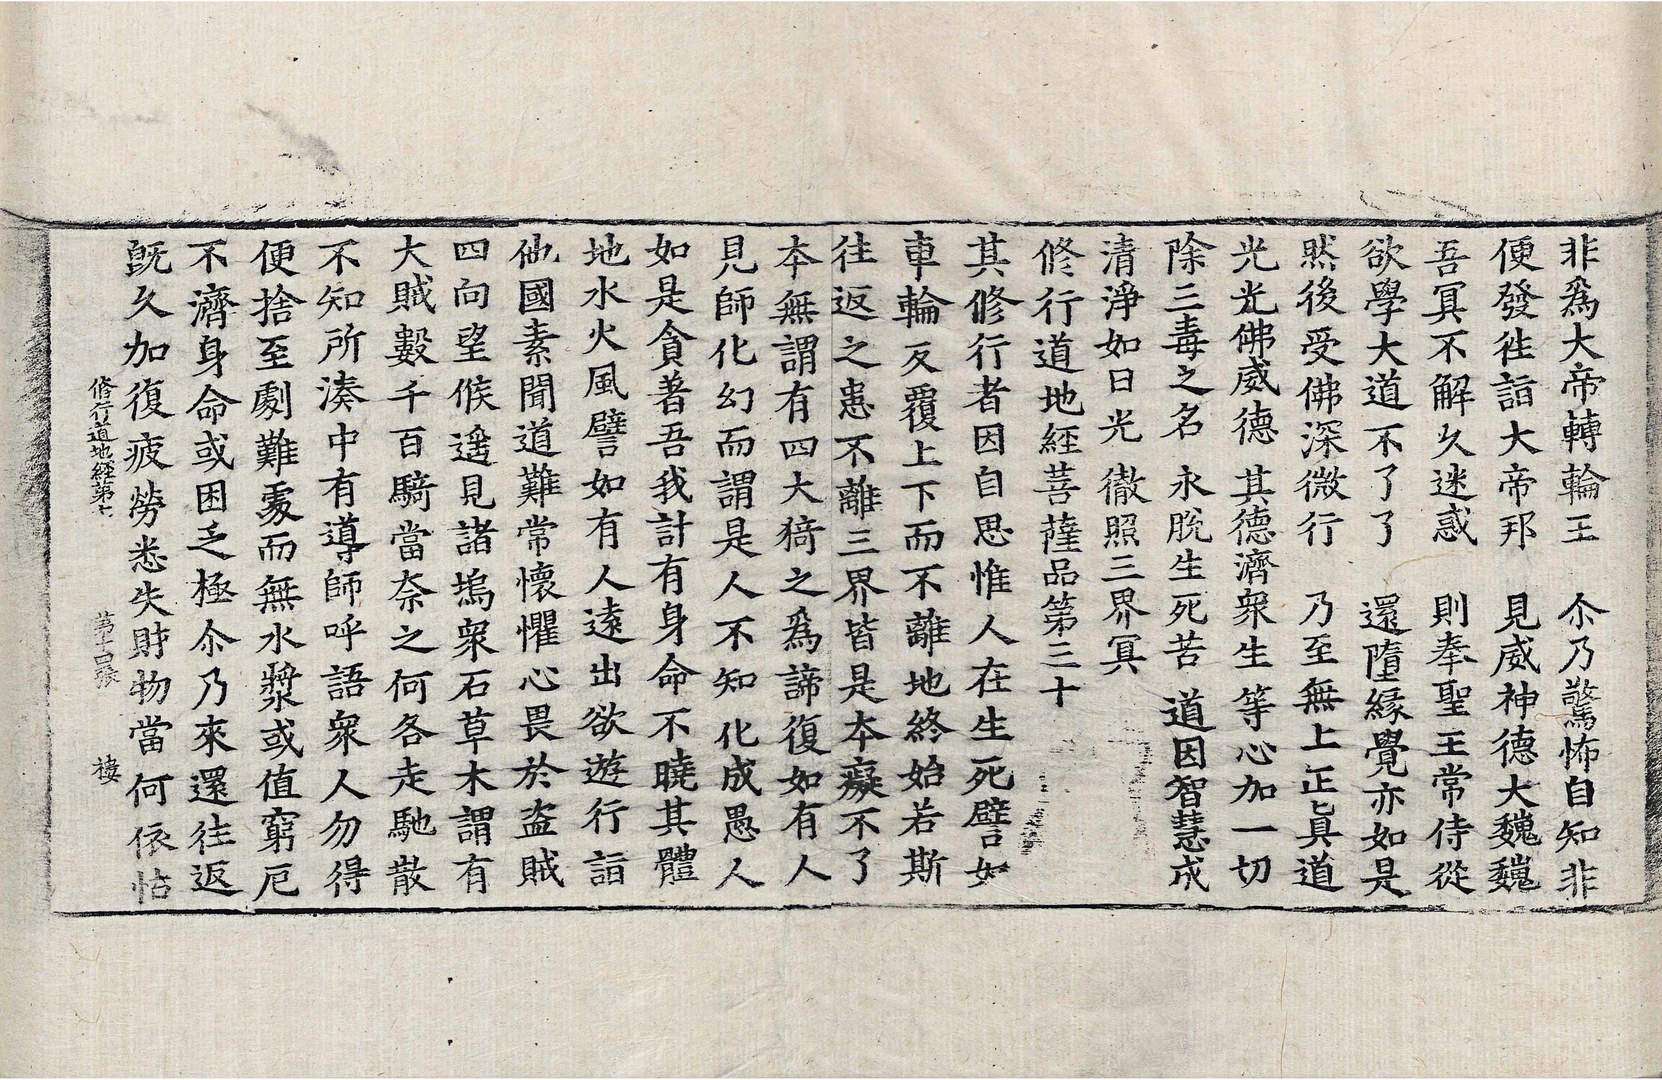 非爲大帝轉輪王　尒乃驚怖自知非
便發徃詣大帝邦　見威神德大魏魏
吾冥不解久迷惑　則奉聖王常侍從
欲學大道不了了　還墮緣覺亦如是
然後受佛深微行　乃至無上正眞道
光光佛威德　其德濟衆生　等心加一切
除三毒之名　永脫生死苦　道因智慧成
清淨如日光　徹照三界冥
修行道地經菩薩品第三十
其修行者因自思惟人在生死譬如
車輪反覆上下而不離地終始若斯
往返之患不離三界皆是本癡不了
本無謂有四大猗之爲諦復如有人
見師化幻而謂是人不知化成愚人
如是貪著吾我計有身命不曉其體
地水火風譬如有人遠出欲遊行詣
他國素聞道難常懷懼心畏於盜賊
四向望候遥見諸塢衆石草木謂有
大賊數千百騎當奈之何各走馳散
不知所湊中有導師呼語衆人勿得
便捨至劇難處而無水漿或值窮厄
不濟身命或困乏極尒乃來還往返
旣久加復疲勞悉失財物當何依怙
修行道地經第七　第十四張　樓